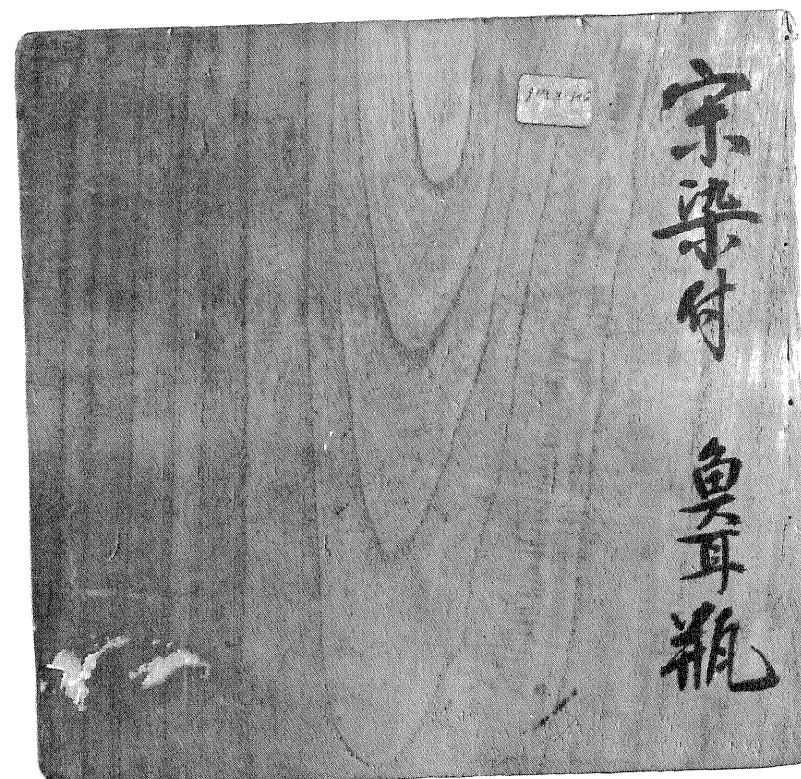 宋染付 魚耳瓶